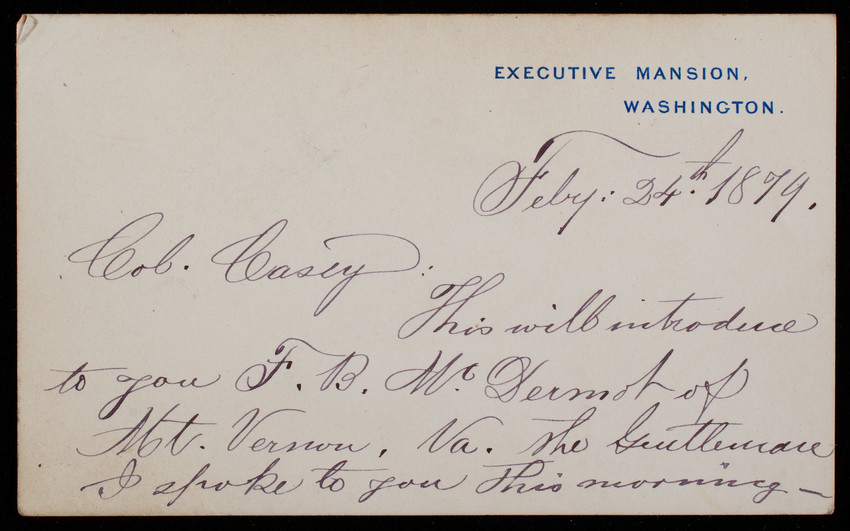 EXECUTIVE MANSION,
WASHINGTON.
Feby: 24th. 1879.
Col. Casey:
This will introduce
to you F. B. Mc Dermot of
Mt. Vernon, Va. the Gentleman
I spoke to you this morning —